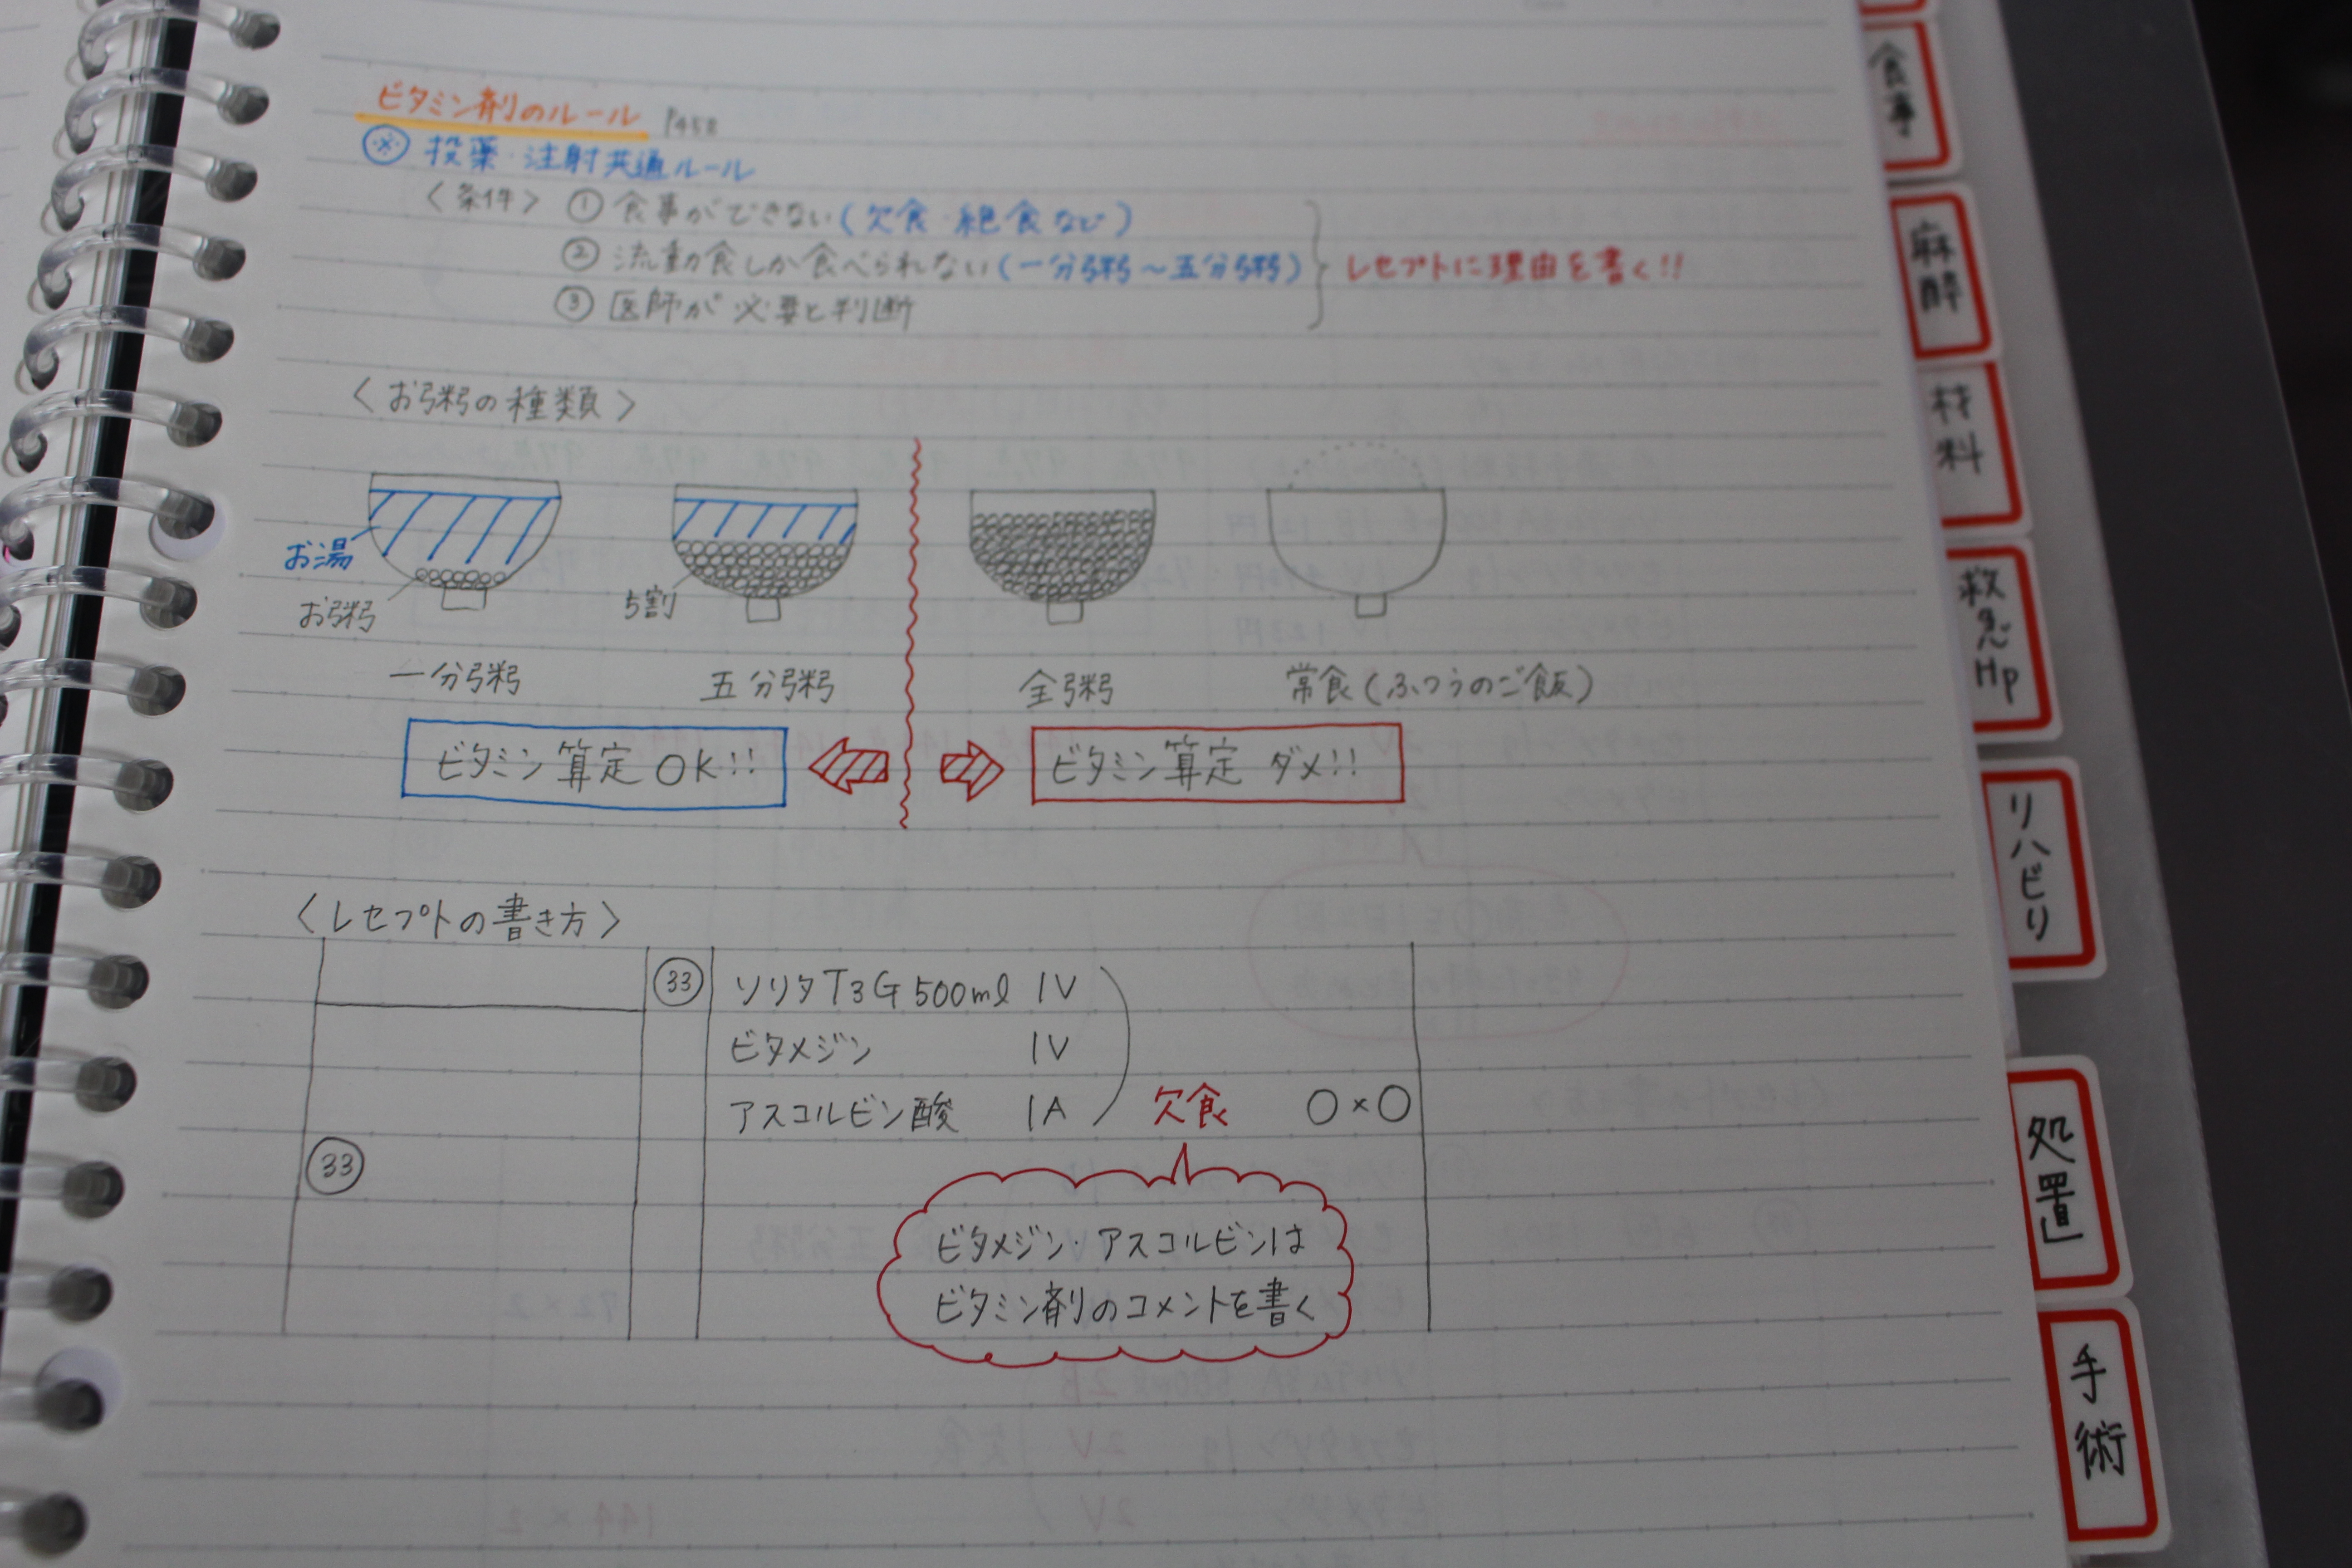 ビタミン剤のルール P458
※ 投薬・注射共通ルール
〈条件〉 ① 食事ができない(欠食・絶食など)
② 流動食しか食べられない(一分粥～五分粥)
③ 医師が必要と判断
レセプトに理由を書く!!
〈お粥の種類〉
お湯
お粥
5割
一分粥 五分粥 全粥 常食(ふつうのご飯)
ビタミン算定OK!! ビタミン算定ダメ!!
〈レセプトの書き方〉
㉝ ソリタT3G 500ml 1V
ビタメジン 1V
アスコルビン酸 1A 欠食 ○×○
㉝
ビタメジン・アスコルビンは
ビタミン剤のコメントを書く
食事
麻酔
材料
救急Hp
リハビリ
処置
手術